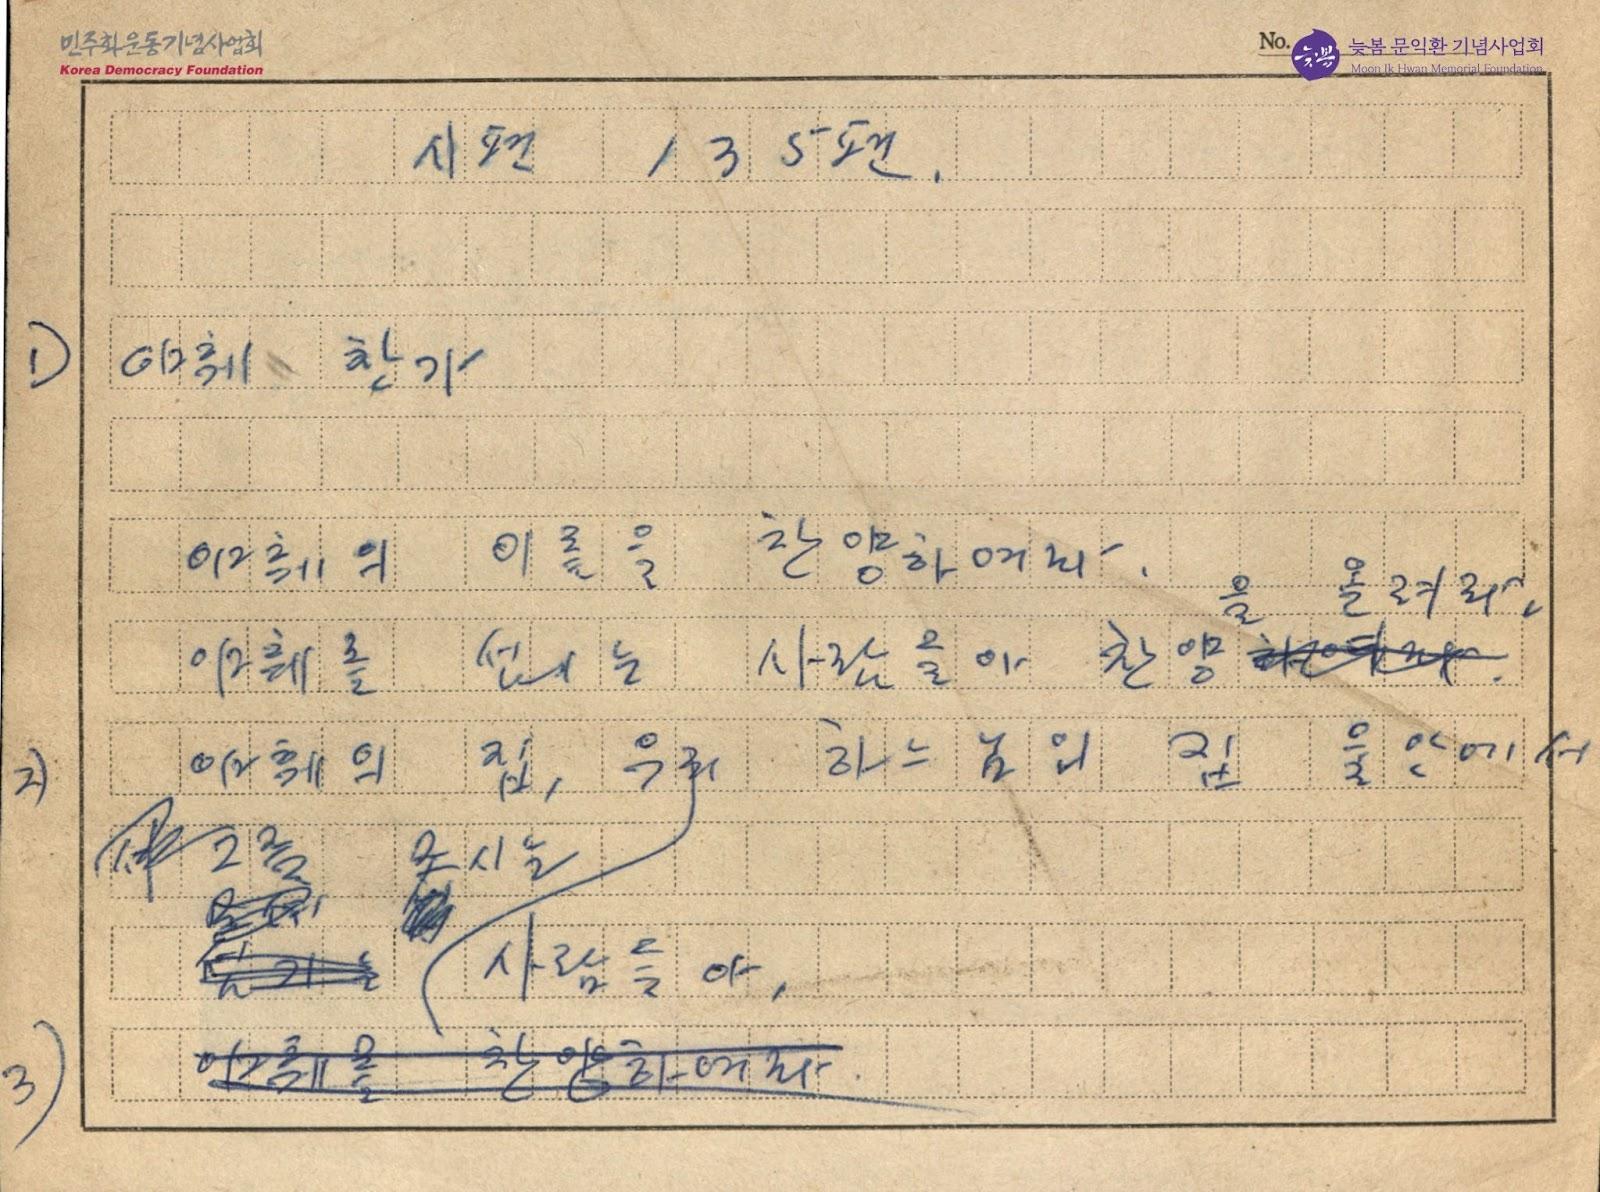 민주화운동기념사업회
Korea Democracy Foundation
No.
늦봄
늦봄 문익환 기념사업회
Moon Ik Hwan Memorial Foundation
시편 135편.
1) 야훼 찬가
야훼의 이름을 찬양하여라.
을 올려라,
야훼를 섬기는 사람들아 찬양하여라.
2) 야훼의 집, 우리 하느님의 집 뜰안에서
그를 모시는
섬기는 사람들아,
3) 야훼를 찬양하여라.